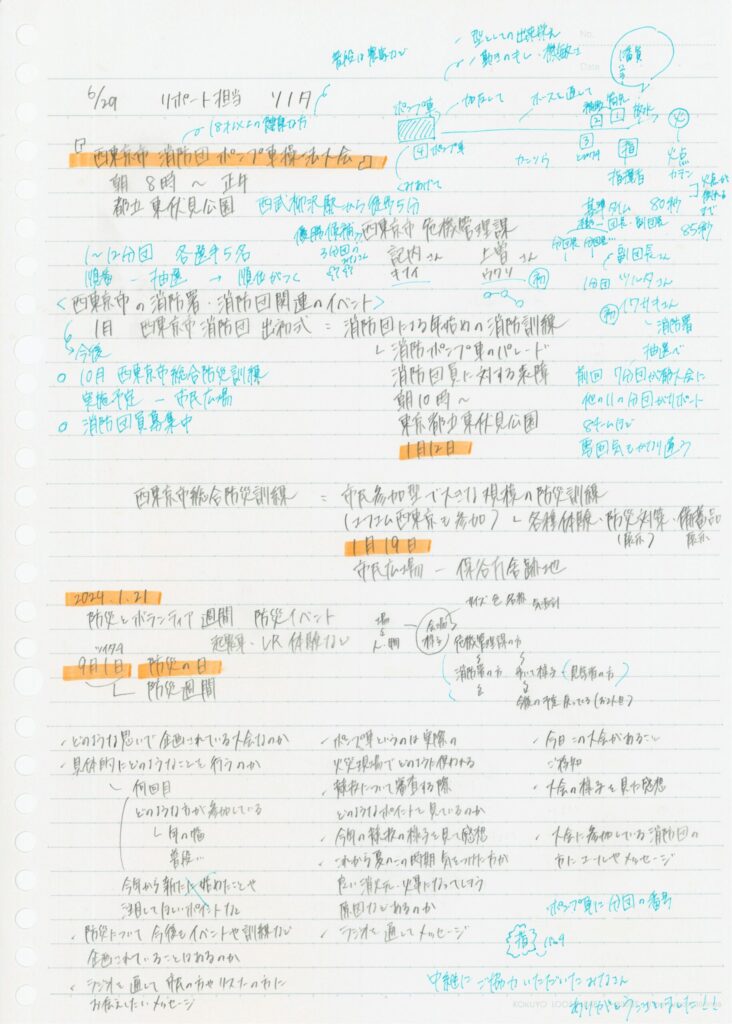 6/29 リポート担当 ツノダ
普段は農家など
型としての出来栄え
動きのキレ・機敏さ
18才以上の健康な方
『西東京市 消防団 ポンプ車操法大会』
朝 8時 〜 正午
都立 東伏見公園 西武柳沢駅から徒歩5分
ポンプ車
ホースを通して
4 ポンプ車
指揮者
火点
基準タイム 80秒
85秒
1〜12分団 各選手5名
順番 - 抽選 → 順位がつく
優勝候補
西東京市 危機管理課
副団長さん
1分団 ツルタさん
イワサキさん
消防署
<西東京市の消防署・消防団関連のイベント>
1月 西東京市消防団 出初式 = 消防団による年始めの消防訓練
消防ポンプ車のパレード
消防団員に対する表彰
朝10時〜
東京都立東伏見公園
1月12日
今後
○ 10月 西東京市総合防災訓練
実施予定 - 市民広場
○ 消防団員募集中
抽選で
前回 7分団が都大会に
他の11の分団がサポート
西東京市総合防災訓練 = 市民参加型で大きな規模の防災訓練
(エフエム西東京も参加) 各種体験・防災対策・備蓄品
(展示) 展示
1月19日
市民広場 - 保谷庁舎跡地
2024.1.21
防災とボランティア週間 防災イベント
起震車・VR体験など
9月1日 防災の日
防災週間
サイズ 色 名称
危機管理課の方
消防署の方
・どのような思いで企画されている大会なのか
・具体的にどのようなことを行うのか
何回目
どのような方が参加している
年の幅
普段は
今年から新たに始めたことや
注目してほしいポイントなど
・防災について今後もイベントや訓練など
企画されていることはあるのか
・ラジオを通して市民の方やリスナーの方に
お伝えしたいメッセージ
・ポンプ車というのは実際の
火災現場でどのように使われる
・競技について審査する際
どのようなポイントを見ているのか
・今年の競技の様子を見て感想
・これから夏のこの時期 気をつけた方が
良い消火や火事になってしまう
原因などあるのか
・ラジオを通してメッセージ
・今日この大会があること
ご存知
・大会の様子を見た感想
・大会に参加している消防団の
方にエールやメッセージ
ポンプ車に分団の番号
中継にご協力いただいたみなさん
ありがとうございました!!